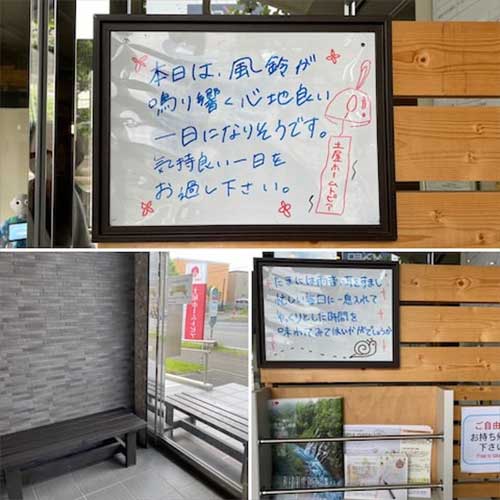 本日は、風鈴が
鳴り響く心地良い
一日になりそうです。
気持良い一日を
お過し下さい。
土屋ホームトピア
たまには雨音に耳を澄まし
忙しい毎日に一息入れて
ゆっくりとした時間を
味わってみてはいかがでしょうか
ご自由
お持ち
下さい